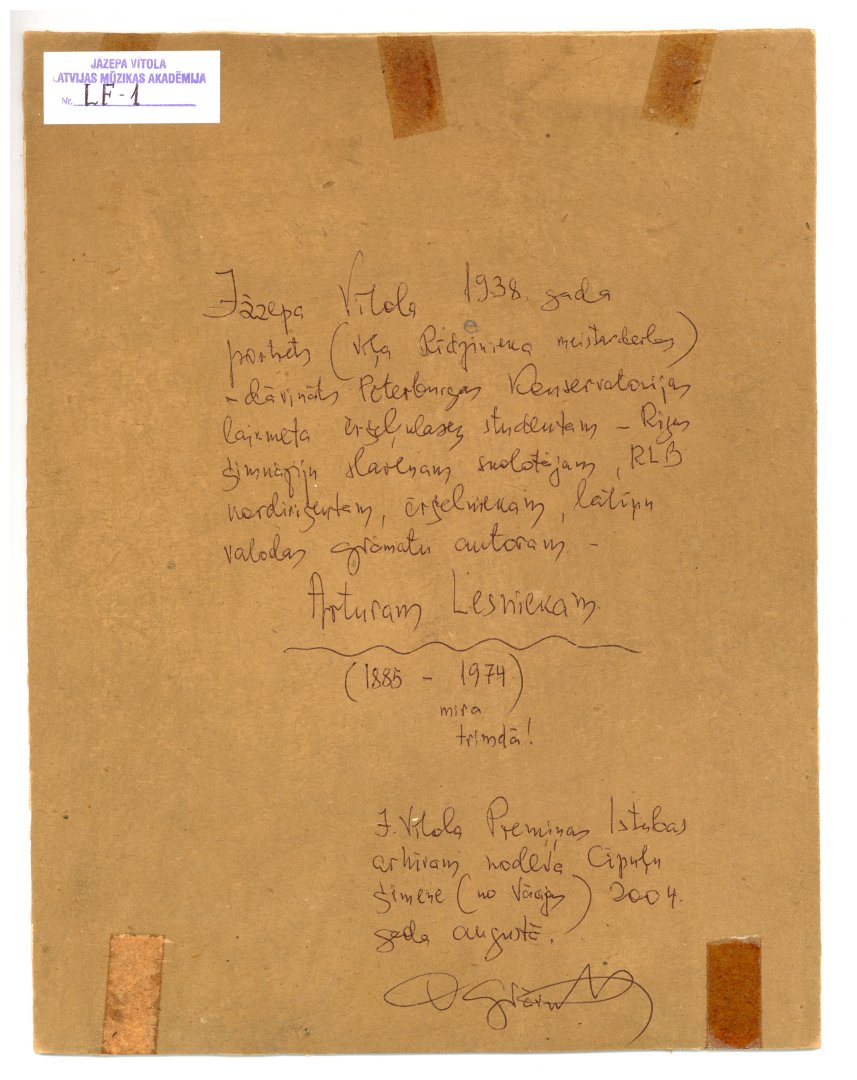 JĀZEPA VĪTOLA
LATVIJAS MŪZIKAS AKADĒMIJA
Nr. LF-1
Jāzepa Vītola 1938. gada
portrets (Viļa Rīdzinieka meistardarbs)
- dāvināts Pēterburgas Konservatorijas
laikmeta ērģeļklases studentam - Rīgas
ģimnāziju slavenam skolotājam, RLB
kordiriģentam, ērģelniekam, latīņu
valodas grāmatu autoram -
Arturam Lesniekam.
(1885 - 1974)
mira
trimdā!
J. Vītola Premiņas Istabas
arhīvam nodeva Cipuļu
ģimene (no Vācijas) 2004.
gada augustā.